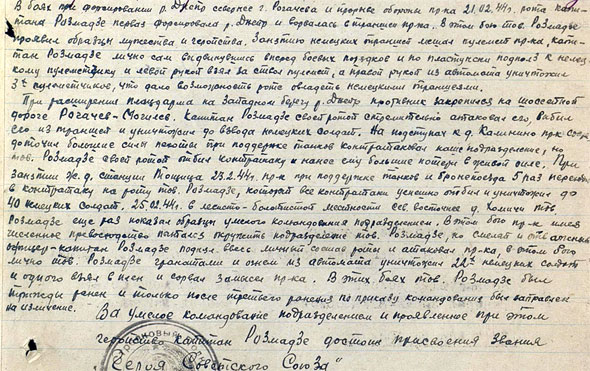 В боях при форсировании р. Днепр севернее г. Рогачева и прорыве обороны пр-ка 21.02.44г. рота капи-
тана Розмадзе первая форсировала р. Днепр и ворвалась в траншеи пр-ка. В этом бою тов. Розмадзе
проявил образцы мужества и геройства. Занятию немецких траншей мешал пулемет пр-ка, капи-
тан Розмадзе лично сам выдвинувшись вперед боевых порядков и по пластунски подполз к немец-
кому пулеметчику и левой рукой взял за ствол пулемет, а правой рукой из автомата уничтожил
3х пулеметчиков, что дало возможность роте овладеть немецкими траншеями.
При расширении плацдарма на западном берегу р. Днепр противник закрепился на шоссейной
дороге Рогачев-Могилев. Капитан Розмадзе своей ротой стремительно атаковал его, выбил
его из траншей и уничтожил до взвода немецких солдат. На подступах к д. Камнино пр-к
большие силы пехоты при поддержке танков контратаковал наше подразделение, но
тов. Розмадзе своей ротой отбил контратаку и нанес ему большие потери в живой силе. При
занятии ж.д. станции Тощица 23.2.44г. пр-к при поддержке танков и бронепоезда 5 раз
в контратаку на роту тов. Розмадзе, который все контратаки успешно отбил и уничтожил до
40 немецких солдат. 25.02.44г. в лесисто-болотистой местности сев. восточнее д. Хомичи тов.
Розмадзе еще раз показал образцы умелого командования подразделением. В этом бою пр-к имея
численное превосходство пытался окружить подразделение тов. Розмадзе, но смелый и
офицер-капитан Розмадзе поднял весь личный состав роты и атаковал пр-ка, в этом бою
лично тов. Розмадзе гранатами и огнем из автомата уничтожил 22х немецких солдат
и одного взял в плен и сорвал замысел пр-ка. В этих боях тов. Розмадзе был
трижды ранен и только после третьего ранения по приказу командования был направлен
на излечение.
За умелое командование подразделением и проявленное при этом
геройство капитан Розмадзе достоин присвоения звания
"Героя Советского Союза"